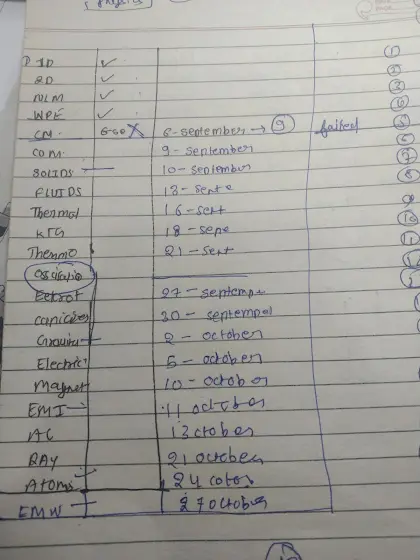 physics
1D ✓ (1)
2D ✓ (2)
NLM ✓ (3)
WPE ✓ (4)
CM. 6-sep X 6-september → (9) failed (5)
COM. 9-september (6)
SOLIDS 10-september (7)
FLUIDS 13-septe (8)
Thermal 16-sept
KTG 18-sepe (10)
Thermo 21-sept (11)
27-septempe
capicitors 30-septempel
Circuits 2-october
Electric 5-october
Magnet 10-october
EMI 11 october
AC 13ctober
RAY 21 october
Atoms 24 cotob
EMW 27october